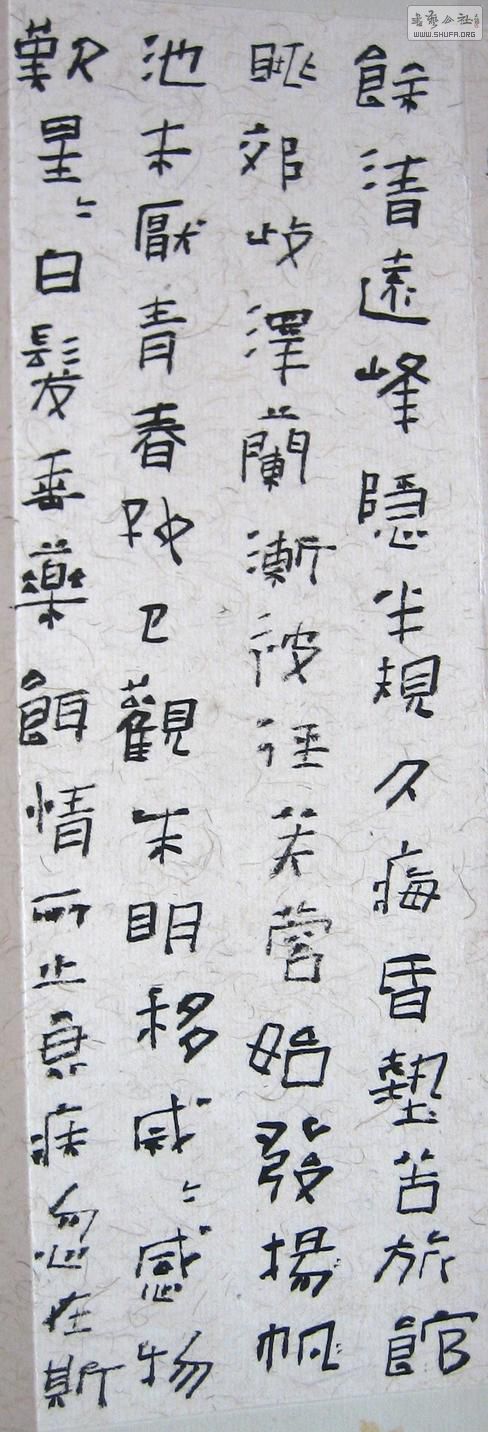 餘清遠峰隱半規久痗昏墊苦旅館
眺郊岐澤蘭漸被徑芙蓉始發揚帆
池未厭青春好已觀朱明移戚〻感物
歎星〻白髮垂藥餌情所止衰疾忽在斯
書藝公社
WWW.SHUFA.ORG